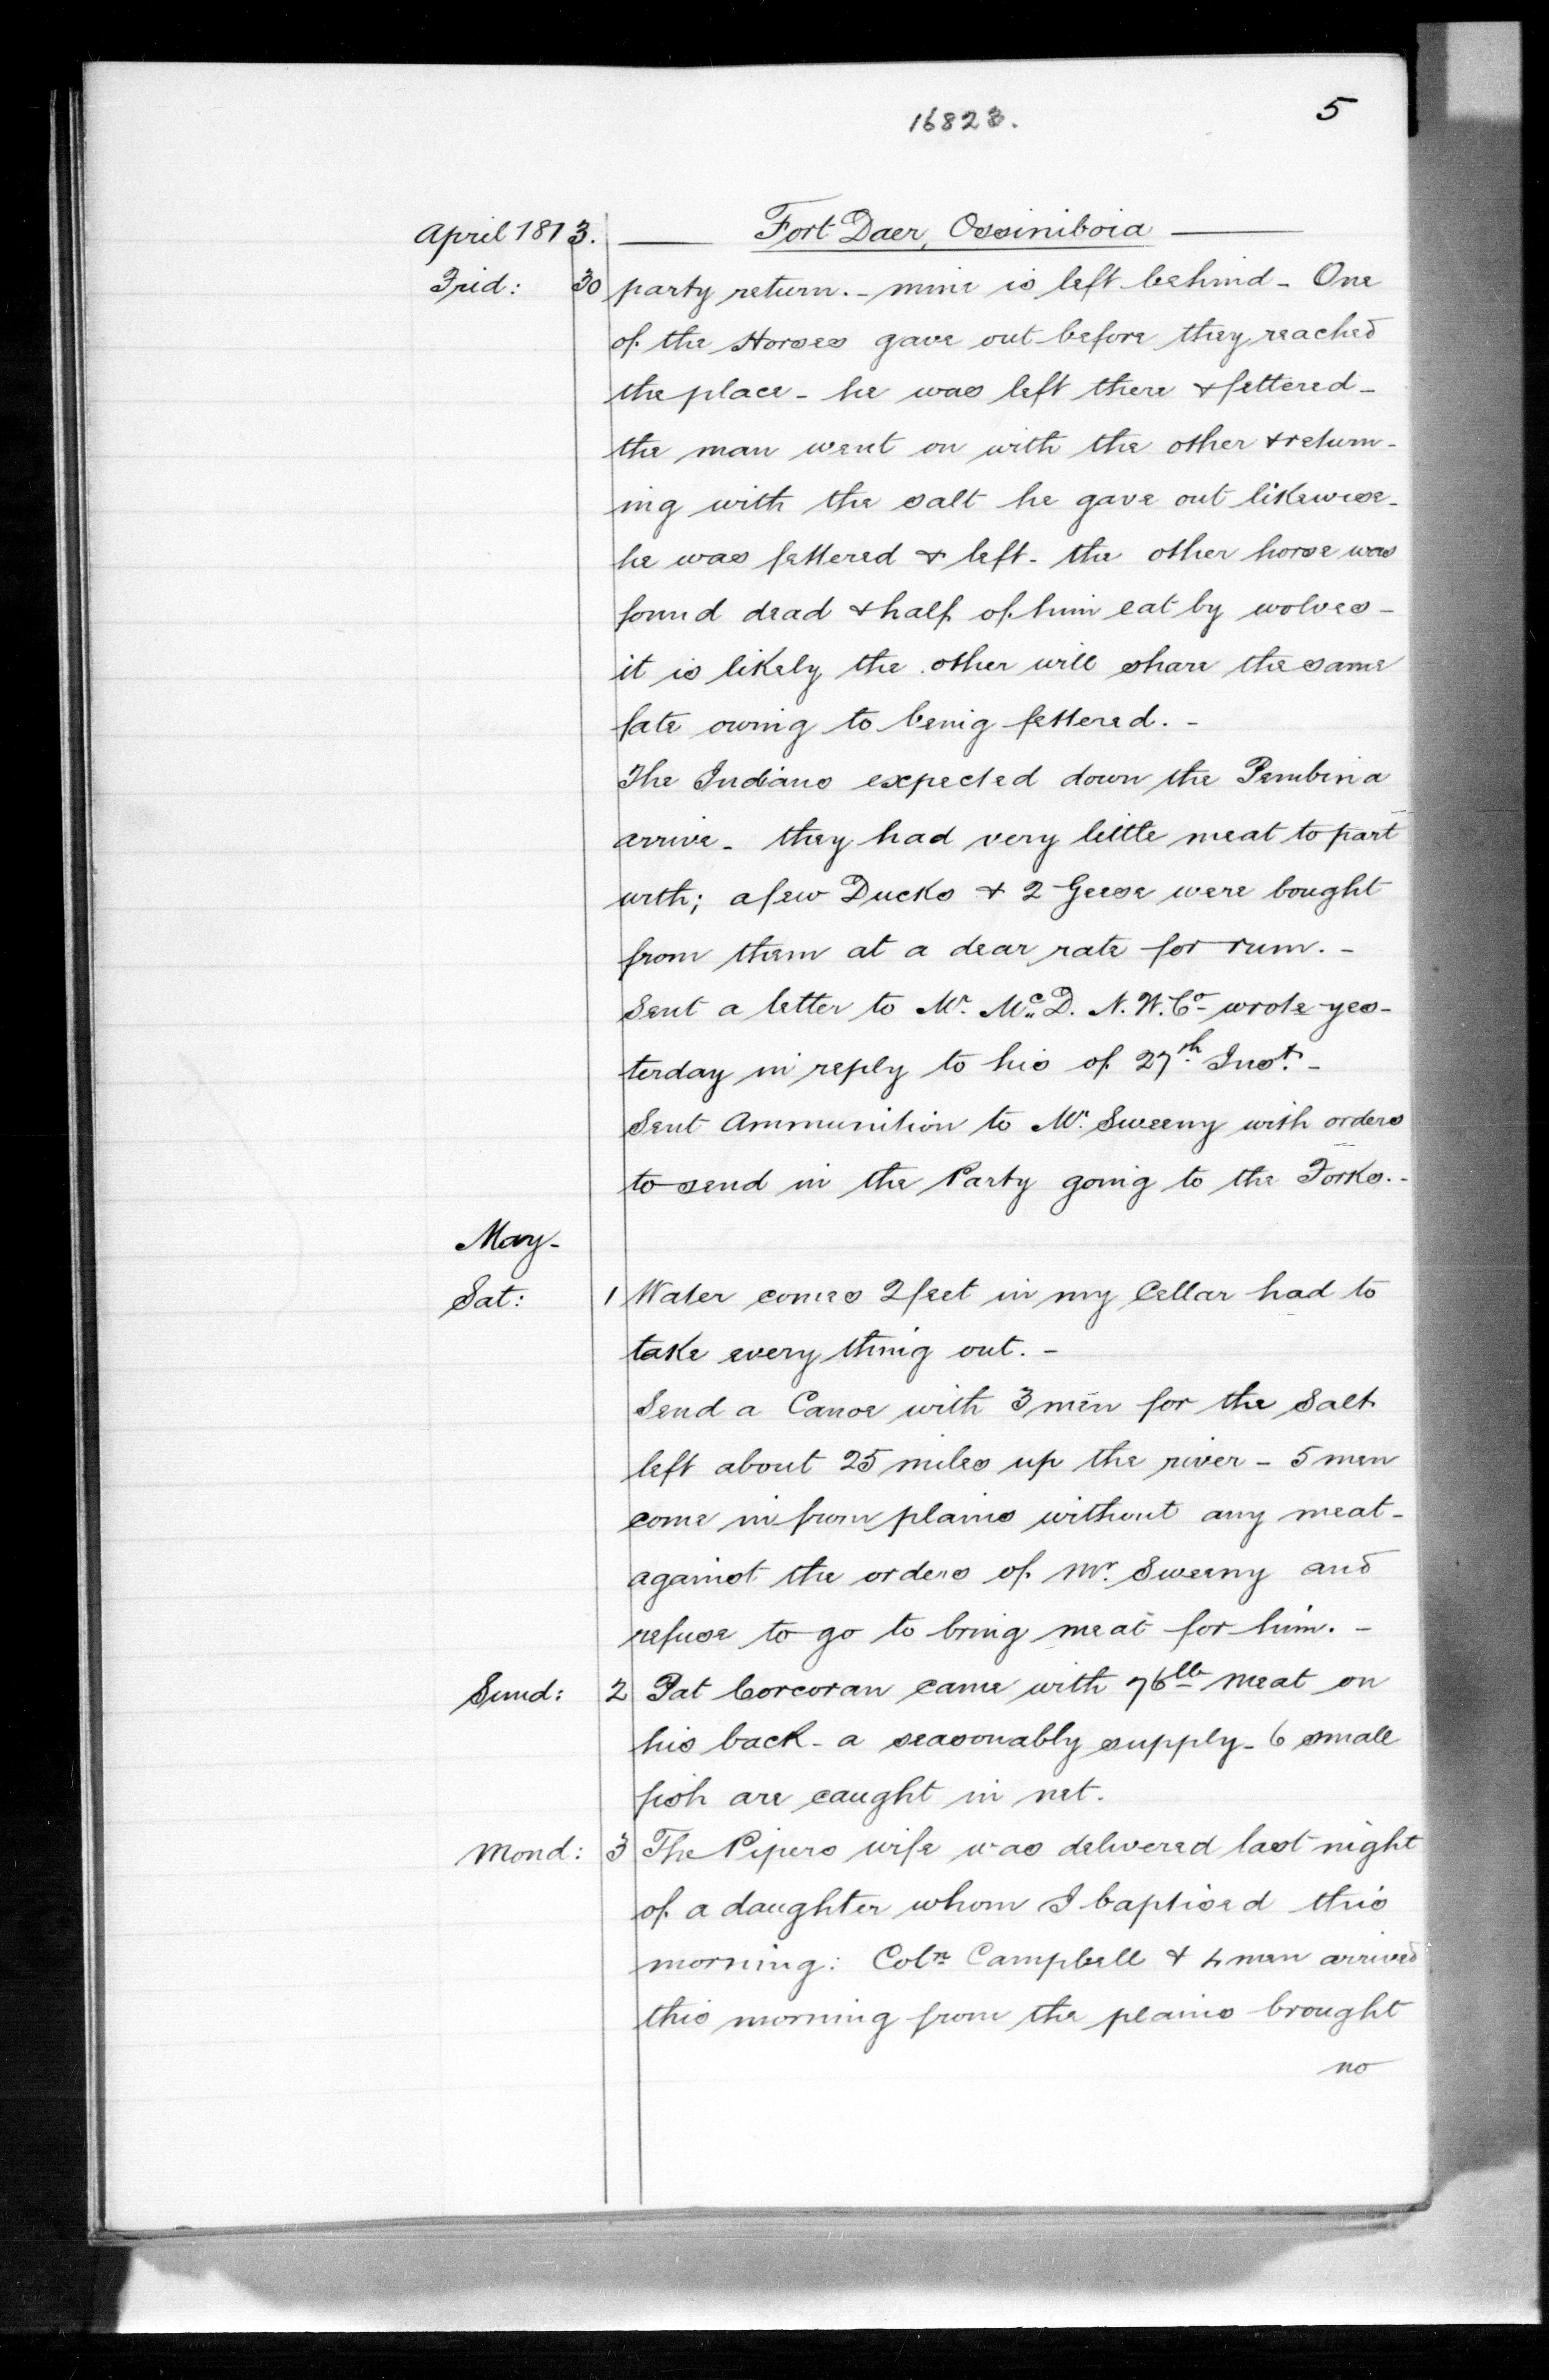 16823.
5
April 1813. Fort Daer, Ossiniboia
Frid: 30 party return. - mine is left behind - One
of the Horses gave out before they reached
the place - he was left there & fettered -
the man went on with the other & return-
ing with the salt he gave out likewise -
he was fettered & left - the other horse was
found dead & half of him eat by wolves -
it is likely the other will share the same
fate owing to being fettered. -
The Indians expected down the Pembina
arrive - they had very little meat to part
with; a few Ducks & 2 Geese were bought
from them at a dear rate for rum. -
Sent a letter to Mr. Mc.D. N.W.Co - wrote yes-
terday in reply to his of 27th Inst. -
Sent Ammunition to Mr. Sweeny with orders
to send in the Party going to the Forks. -
May -
Sat: 1 Water comes 2 feet in my Cellar had to
take every thing out. -
Send a Canoe with 3 men for the Salt
left about 25 miles up the river - 5 men
come in from plains without any meat -
against the orders of Mr. Sweeny and
refuse to go to bring meat for him. -
Sund: 2 Pat Corcoran came with 76 lb meat on
his back - a seasonably supply - 6 small
fish are caught in net.
Mond: 3 The Pipers wife was delivered last night
of a daughter whom I baptised this
morning: Coln Campbell & 4 men arrived
this morning from the plains brought
no